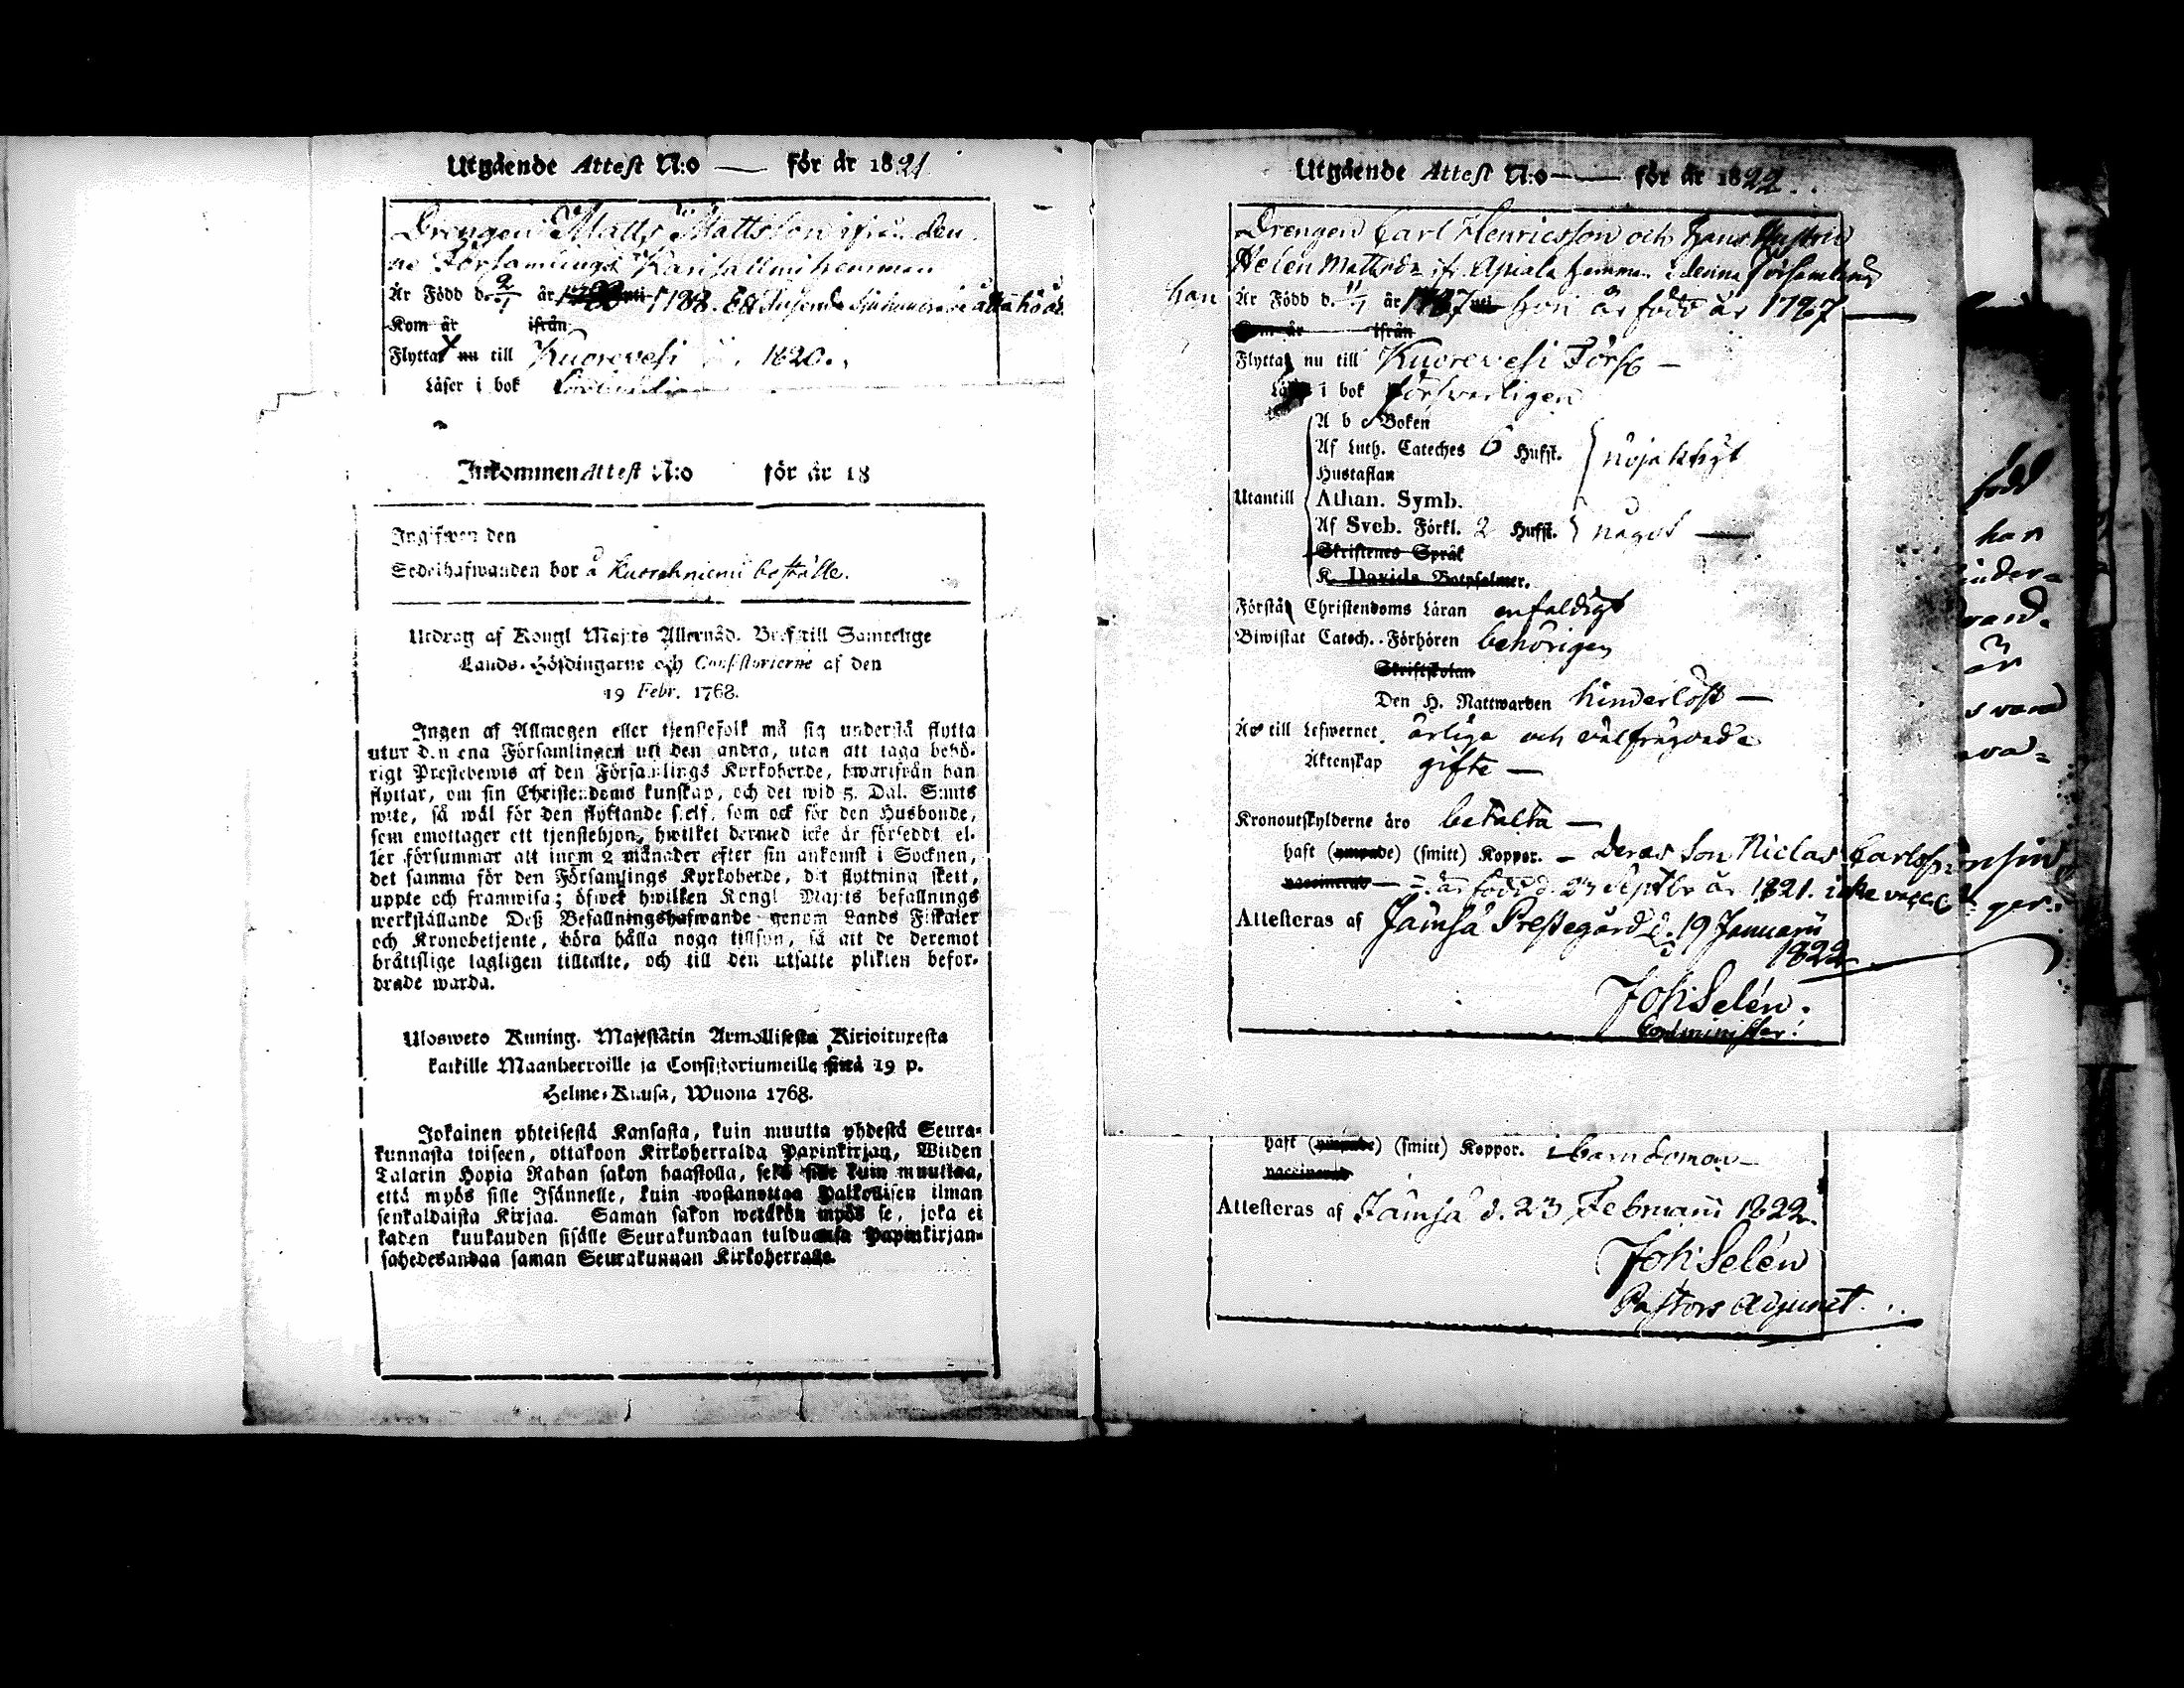 Utgående Attest N:o — för år 1821
Drengen Matts Mattsson ifrån den
ne Församlings hemman
Är Född d. 2/1 år 1788.
Kom år ifrån
Flyttat nu till Kuorevesi 1820.
Läser i bok
Inkommen Attest N:o för år 18
Ingifwen den
Sedelhafwanden bor å Kuorehniemi boställe.
Utdrag af Kongl Maj:ts Allernåd. Bref till Samtelige
Lands-Höfdingarne och Consistorierne af den
19 Febr. 1768.
Ingen af Allmogen eller tjenstefolk må sig understå flytta
utur den ena Församlingen uti den andra, utan att taga behö-
rigt Prestebewis af den Församlings Kyrkoherde, hwarifrån han
flyttar, om sin Christendoms kunskap, och det wid 5. Dal. S:mts
wite, så wäl för den flyttande sjelf, som ock för den Husbonde,
som emottager ett tjenstehjon, hwilket dermed icke är försedt el-
ler försummar att inom 2 månader efter sin ankomst i Socknen,
det samma för den Församlings Kyrkoherde, dit flyttning skett,
uppte och framwisa; öfwer hwilken Kongl Maj:ts befallnings
werkställande Deß Befallningshafwande genom Lands Fiskaler
och Kronobetjente, böra hålla noga tillsyn, så att de deremot
bråttslige lagligen tilltalte, och till den utsatte plikten befor-
drade warda.
Ulosweto Kuning. Majestätin Armollisesta Kirjoituxesta
kaikille Maanherroille ja Consistoriumeille siitä 19 p.
Helme-Kuusa, Wuona 1768.
Jokainen yhteisestä Kansasta, kuin muutta yhdestä Seura-
kunnasta toiseen, ottakoon Kirkoherralda Papinkirjan, Wiiden
Talarin Hopia Rahan sakon haastolla, sekä sille kuin muuttaa,
että myös sille Isännelle, kuin wastanottaa Palkollisen ilman
senkaldaista Kirjaa. Saman sakon wetäkön myös se, joka ei
kaden kuukauden sisälle Seurakundaan tulduansa Papinkirjan-
sahedesandaa saman Seurakunnan Kirkoherralle.
Utgående Attest N:o — för år 1822.
Drengen Carl Henricsson och hans Hustru
Helen Mattsdr ifr. Apiala hemman i denna Församling
han Är Född d. 11/1 år 1787 hon är född år 1797
Kom år ifrån
Flytta nu till Kuorevesi Förs. —
Läser i bok försvarligen
A b c Boken
Af Luth. Cateches 6 Hufst. nöjaktigt
Hustaflan
Utantill Athan. Symb.
Af Sveb. Förkl. 2 Hufst. något —
Skriftenes Språk
K. Davids Botpsalmer.
Förstå Christendoms Läran enfaldigt
Biwistat Catech. Förhören behörigen
Skriftskolan
Den H. Nattwarden hinderlöst —
Är till Lefwernet ärliga och välfrägdade
Äktenskap gifte —
Kronoutskylderne äro betalta —
haft (ympade) (smitt) Koppor. — Deras Son Niclas Carlsson
vaccinerad — är född d. 23 Septbr år 1821. icke vacc
Attesteras af Jämsä Prestegård d. 19 Januarii
1822
Joh: Selén.
Comminister.
haft (ympade) (smitt) Koppor. i barndomen —
vaccinerad
Attesteras af Jämsä d. 23 Februarii 1822.
Joh: Selén
Pastors Adjunct.
född
han